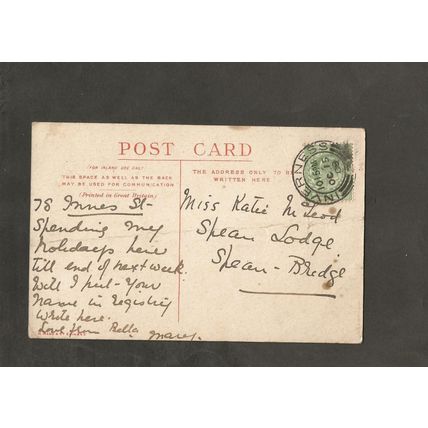 POST CARD
(FOR INLAND USE ONLY)
THIS SPACE AS WELL AS THE BACK
MAY BE USED FOR COMMUNICATION
(Printed in Great Britain)
THE ADDRESS ONLY TO BE
WRITTEN HERE
INVERNESS
78 Innes St-
Spending my
holidays here
till end of next week.
Will I put your
name in registry
Wrote here.
Love from Bella
Mary.
Miss Katie McLeod
Spean Lodge
Spean-Bridge